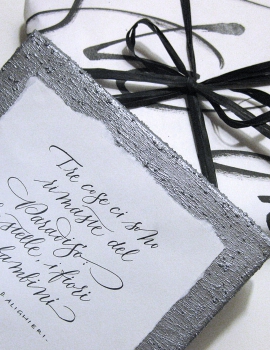 Tre cose ci sono
rimaste del
Paradiso.
stelle, i fiori
bambini
ALIGHIERI.